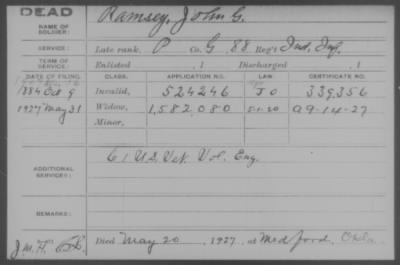 DEAD
NAME OF SOLDIER: Ramsey, John G.
SERVICE: Late rank, P Co. G, 88 Reg't Ind. Inf.
TERM OF SERVICE: Enlisted , 1 Discharged , 1
DATE OF FILING. CLASS. APPLICATION NO. LAW. CERTIFICATE NO.
1884 Oct 9 Invalid, 524246 339,356
1927 May 31 Widow, 1,582,080 5-1-20 A9-14-27
Minor,
ADDITIONAL SERVICES: C 1 U.S. Vet. Vol. Eng.
REMARKS:
Died May 20, 1927, at Medford, Okla.